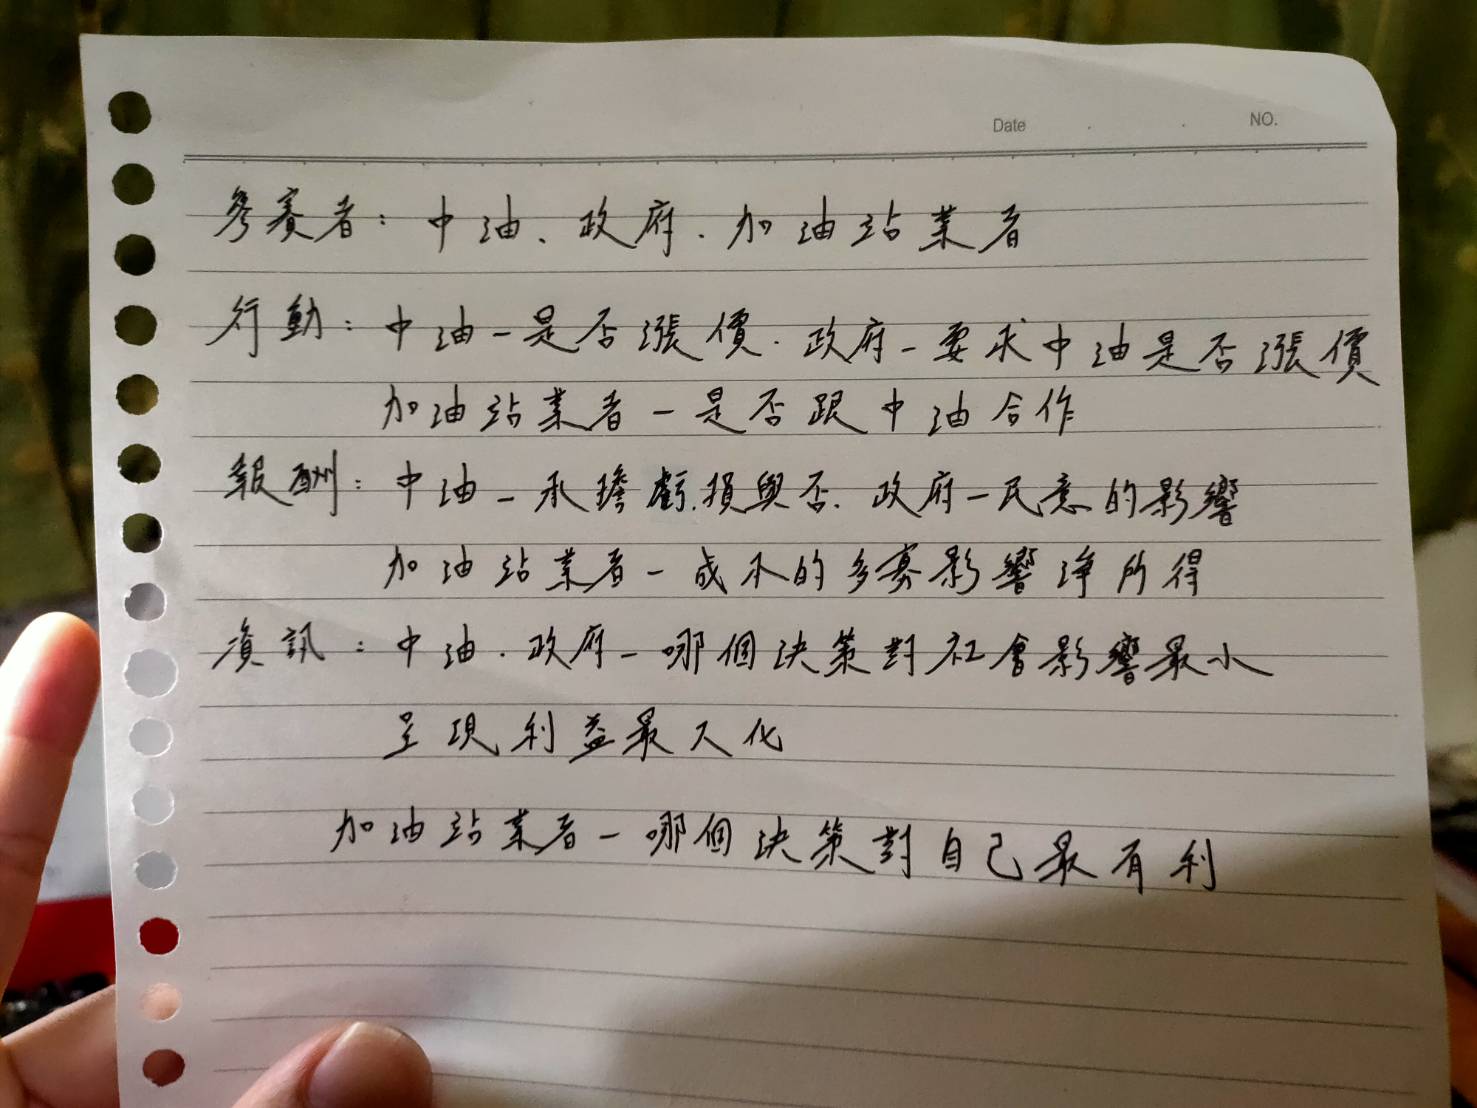 Date . . NO.
參賽者：中油、政府、加油站業者
行動：中油－是否漲價、政府－要求中油是否漲價
加油站業者－是否跟中油合作
報酬：中油－承擔虧損與否、政府－民意的影響
加油站業者－成本的多寡影響淨所得
資訊：中油、政府－哪個決策對社會影響最小
呈現利益最大化
加油站業者－哪個決策對自己最有利